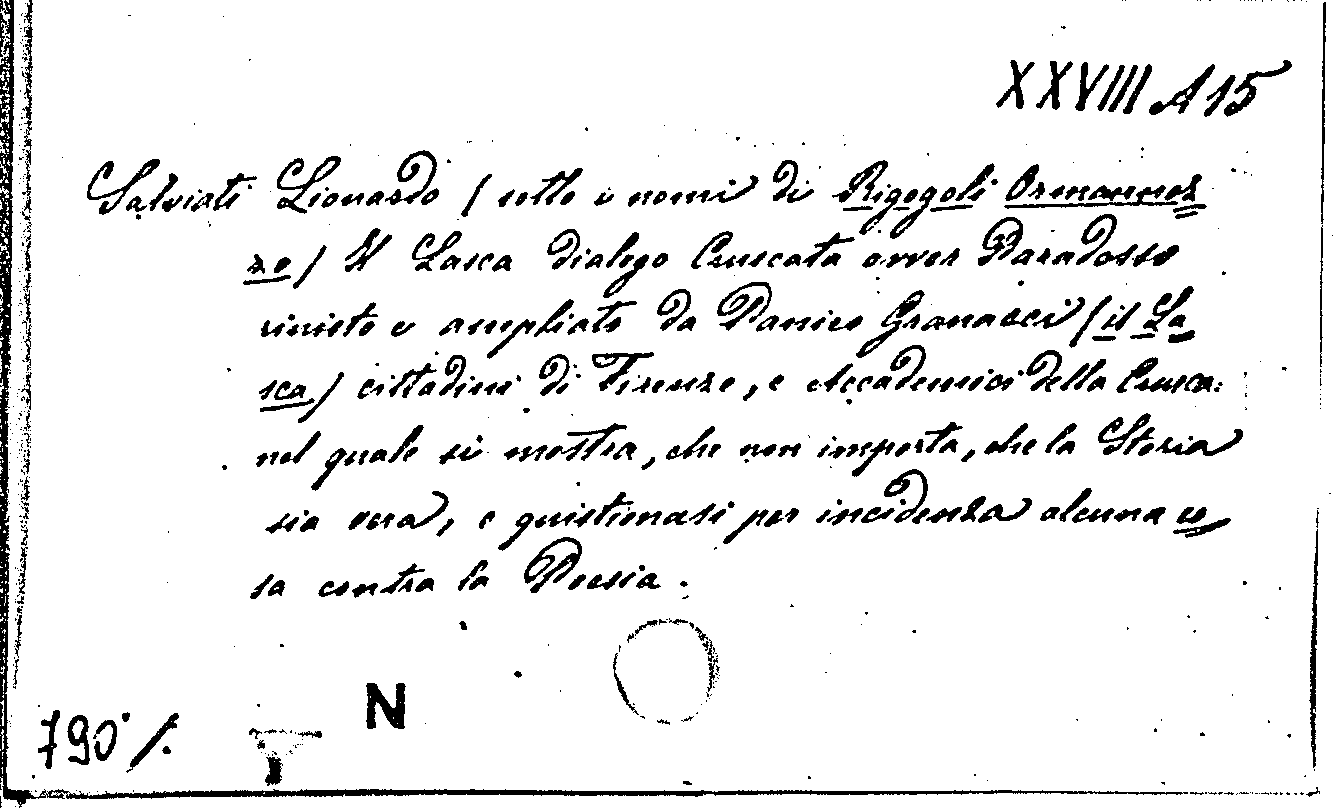 XXVIII A 15
Salviati Lionardo / sotto i nomi di Rigogoli Ormannoz=
zo / Il Lasca dialogo Cruscata over Paradosso
rivisto e ampliato da Panico Granacci / il La=
sca / cittadini di Firenze, e Accademici della Crusca:
nel quale si mostra, che non importa, che la Storia
sia vera, e quistionasi per incidenza alcuna co=
sa contra la Poesia.
N
790 /.